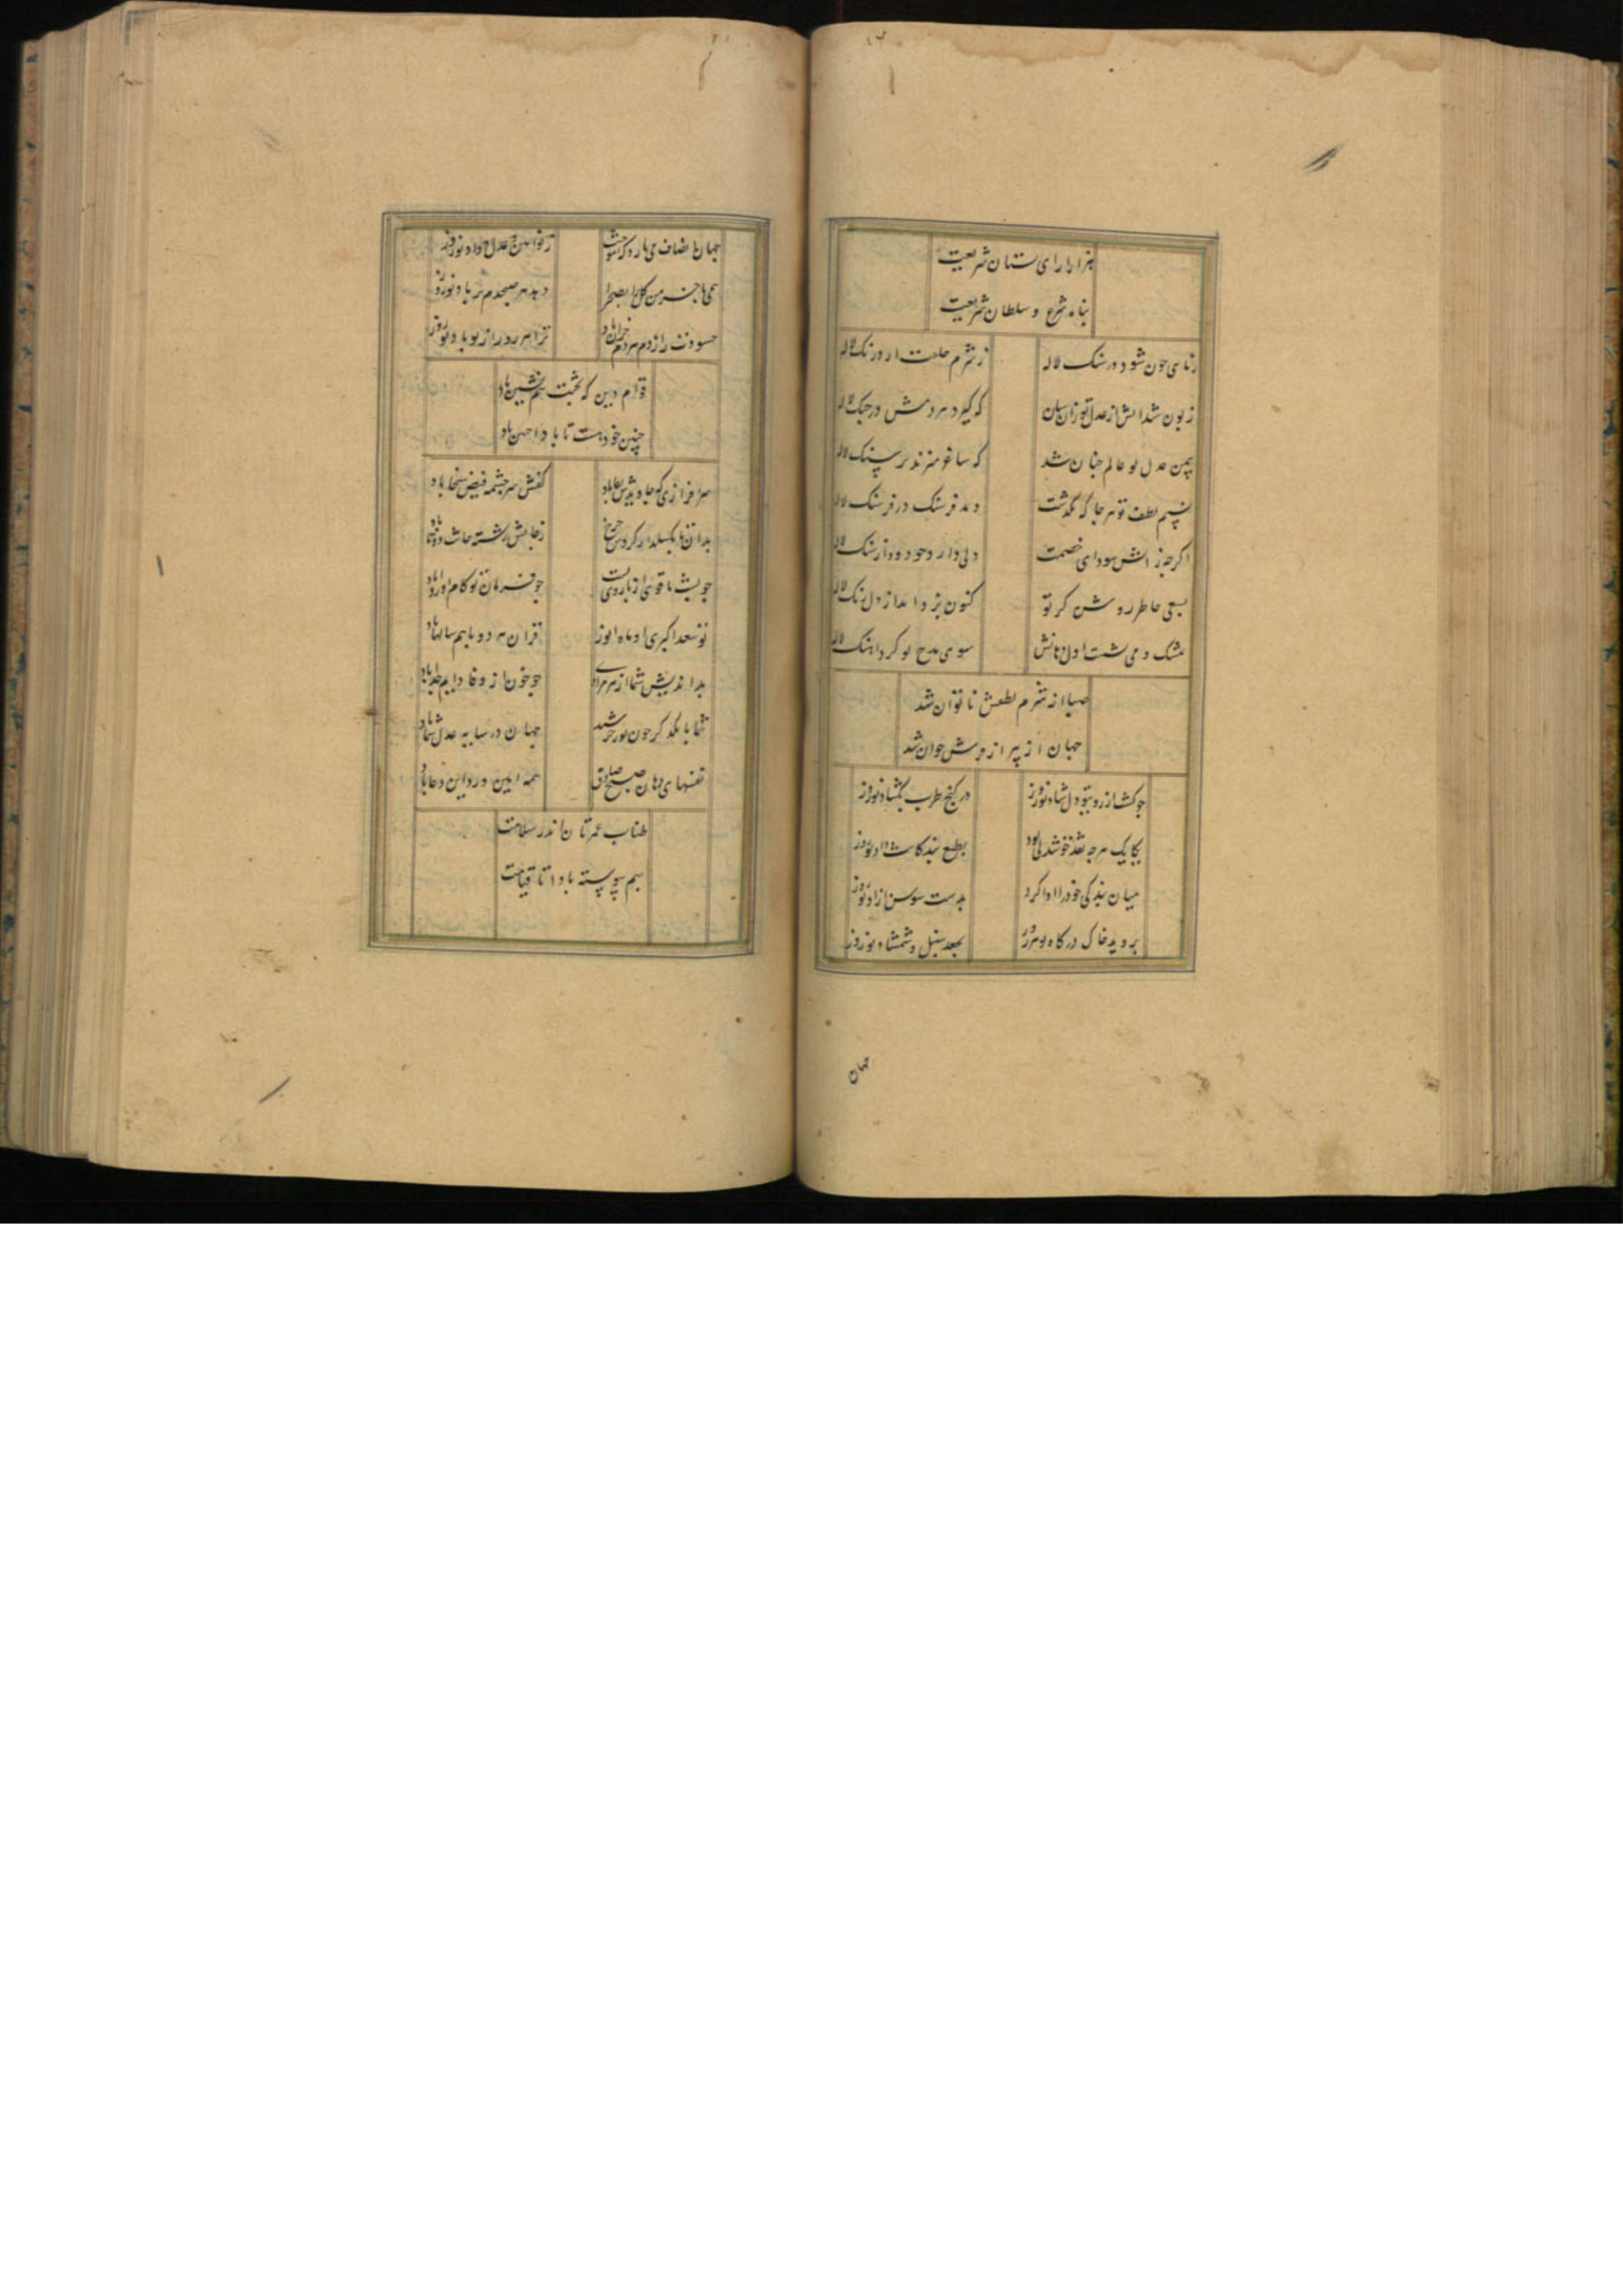 هزارارای ستان شریعت
پناه شرع و سلطان شریعت
شود در سنک لاله ز شرم حلمت ار درنک لاله
زبون شد اتش از عدل تو زان سان که گیرد هر دمش در چنک لاله
بیمن عدل تو عالم چنان شد که ساغر میزند بر سنک لاله
نسیم لطف تو هرجا که بگذشت دمد فرسنک در فرسنک لاله
اگرچه ز اتش سودای خصمت دلی دارد چو دود از سنک لاله
بسعی خاطر روشن کر تو کنون بزداید از دل زنک لاله
بمشک و می بشست اول دهانش سوی مدح تو کرد اهنک لاله
صبا از شرم لطفش ناتوان شد
جهان از پیر از جوان شد
چو کشاز رو بتو دل شاد نوروز در کنج طرب بگشاد نوروز
یکایک هرچه نقد خوشدلی بود بطبع بندکانت داد نوروز
میان بندکی خود را ادا کرد بدست سوسن ازاد نوروز
بروید خاک درکاه تو هر روز بجعد سنبل و شمشاد نوروز
جهان
جهان انصاف می داد نوروز
خرمن کل را بصحرا دهد هر صبحدم بر باد نوروز
حسودت را ز دم سردم خزان باد ترا هر روز از نو باد نوروز
قوام دین که بختت همنشین باد
چنین خود هست تا بادا چنین باد
سرافرازی که جاویدش بقا باد کفش سرچشمه فیض سخا باد
رشته حاجت دوتا باد
چو پشت ما قوی از بازوی تست چو فرمان تو کام او روا باد
تو سعد اکبری او ماه انور قران هر دو باهم سالها باد
بداندیش شما از هر مرادی چو خون از وفا دایم جدا باد
شما با یکدکر چون نور خورشید جهان در سایه عدل شما باد
نفسهای دهان صبح صادق همه امین ورد این دعا باد
طناب عمرتان اندر سلامت
بهم پیوسته بادا تا قیامت